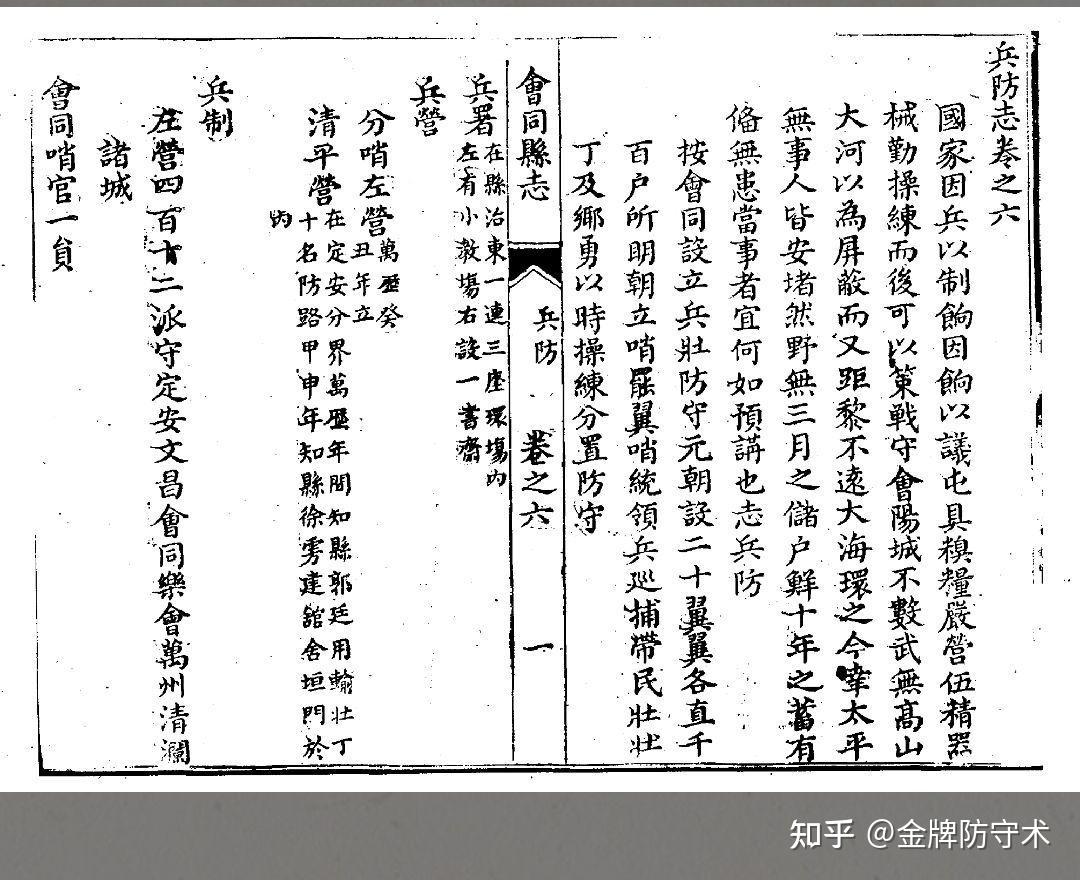 兵防志卷之六
國家因兵以制餉因餉以議屯具糗糧嚴營伍精器
械勤操練而後可以策戰守會陽城不數武無高山
大河以為屏蔽而又距黎不遠大海環之今幸太平
無事人皆安堵然野無三月之儲户鮮十年之蓄有
備無患當事者宜何如預講也志兵防
按會同設立兵壯防守元朝設二十翼翼各直千
百户所明朝立哨罷翼哨統領兵巡捕帶民壯壯
丁及鄉勇以時操練分置防守
會同縣志
兵防
卷之六
一
兵署
在縣治東一連三座環塲内
左有小教塲右設一書齋
兵營
分哨左營
萬歷癸
丑年立
清平營
在定安分界萬歷年間知縣郭廷用輸壯丁
十名防路甲申年知縣徐雱建舘舍垣門於
内
兵制
左營四百十二派守定安文昌會同樂會萬州清瀾
諸城
會同哨官一員
知乎 @金牌防守术